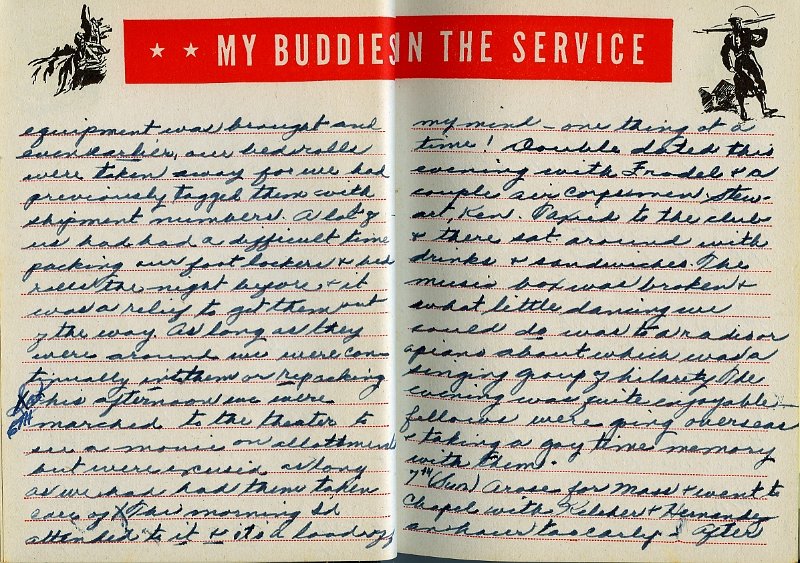 ★ ★ MY BUDDIES IN THE SERVICE
equipment was brought and
even earlier, our bedrolls
were taken away for we had
previously tagged them with
shipment numbers. A lot of
us had had a difficult time
packing our foot lockers & bed
rolls the night before, & it
was a relief to get them out
of the way. As long as they
were around we were con
tinually in them or repacking
X this afternoon we were
marched to the theater to
see a movie on allotments
but were excused as long
as we had had them taken
care of X This morning I'd
attended to it & it's a load off
my mind - one thing at a
time! Double dated this
evening with Fradel & a
couple air corpsmen. Stew-
art, Ken. Taxied to the club
& there sat around with
drinks & sandwiches. The
music box was broken &
what little dancing we
could do was to a radio or
a piano about which was a
singing group of hilarity. The
evening was quite enjoyable -
fellows were going overseas
& taking a gay time memory
with them.
7th (Sun) Arose for Mass & went to
Chapel with Kelsher & Hernandez
an hour too early - After